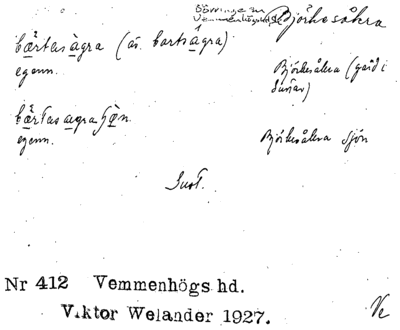 Börringe sn
Vemmenhögs hd. Björkesåkra
bæ̊rtasàgra (äv. bartsågra)
egenn. Björkesåkra (gård i
bæ̊rtasagraʃøn
egenn. Björkesåkra sjön
Nr 412 Vemmenhögs hd.
Viktor Welander 1927.
Ve